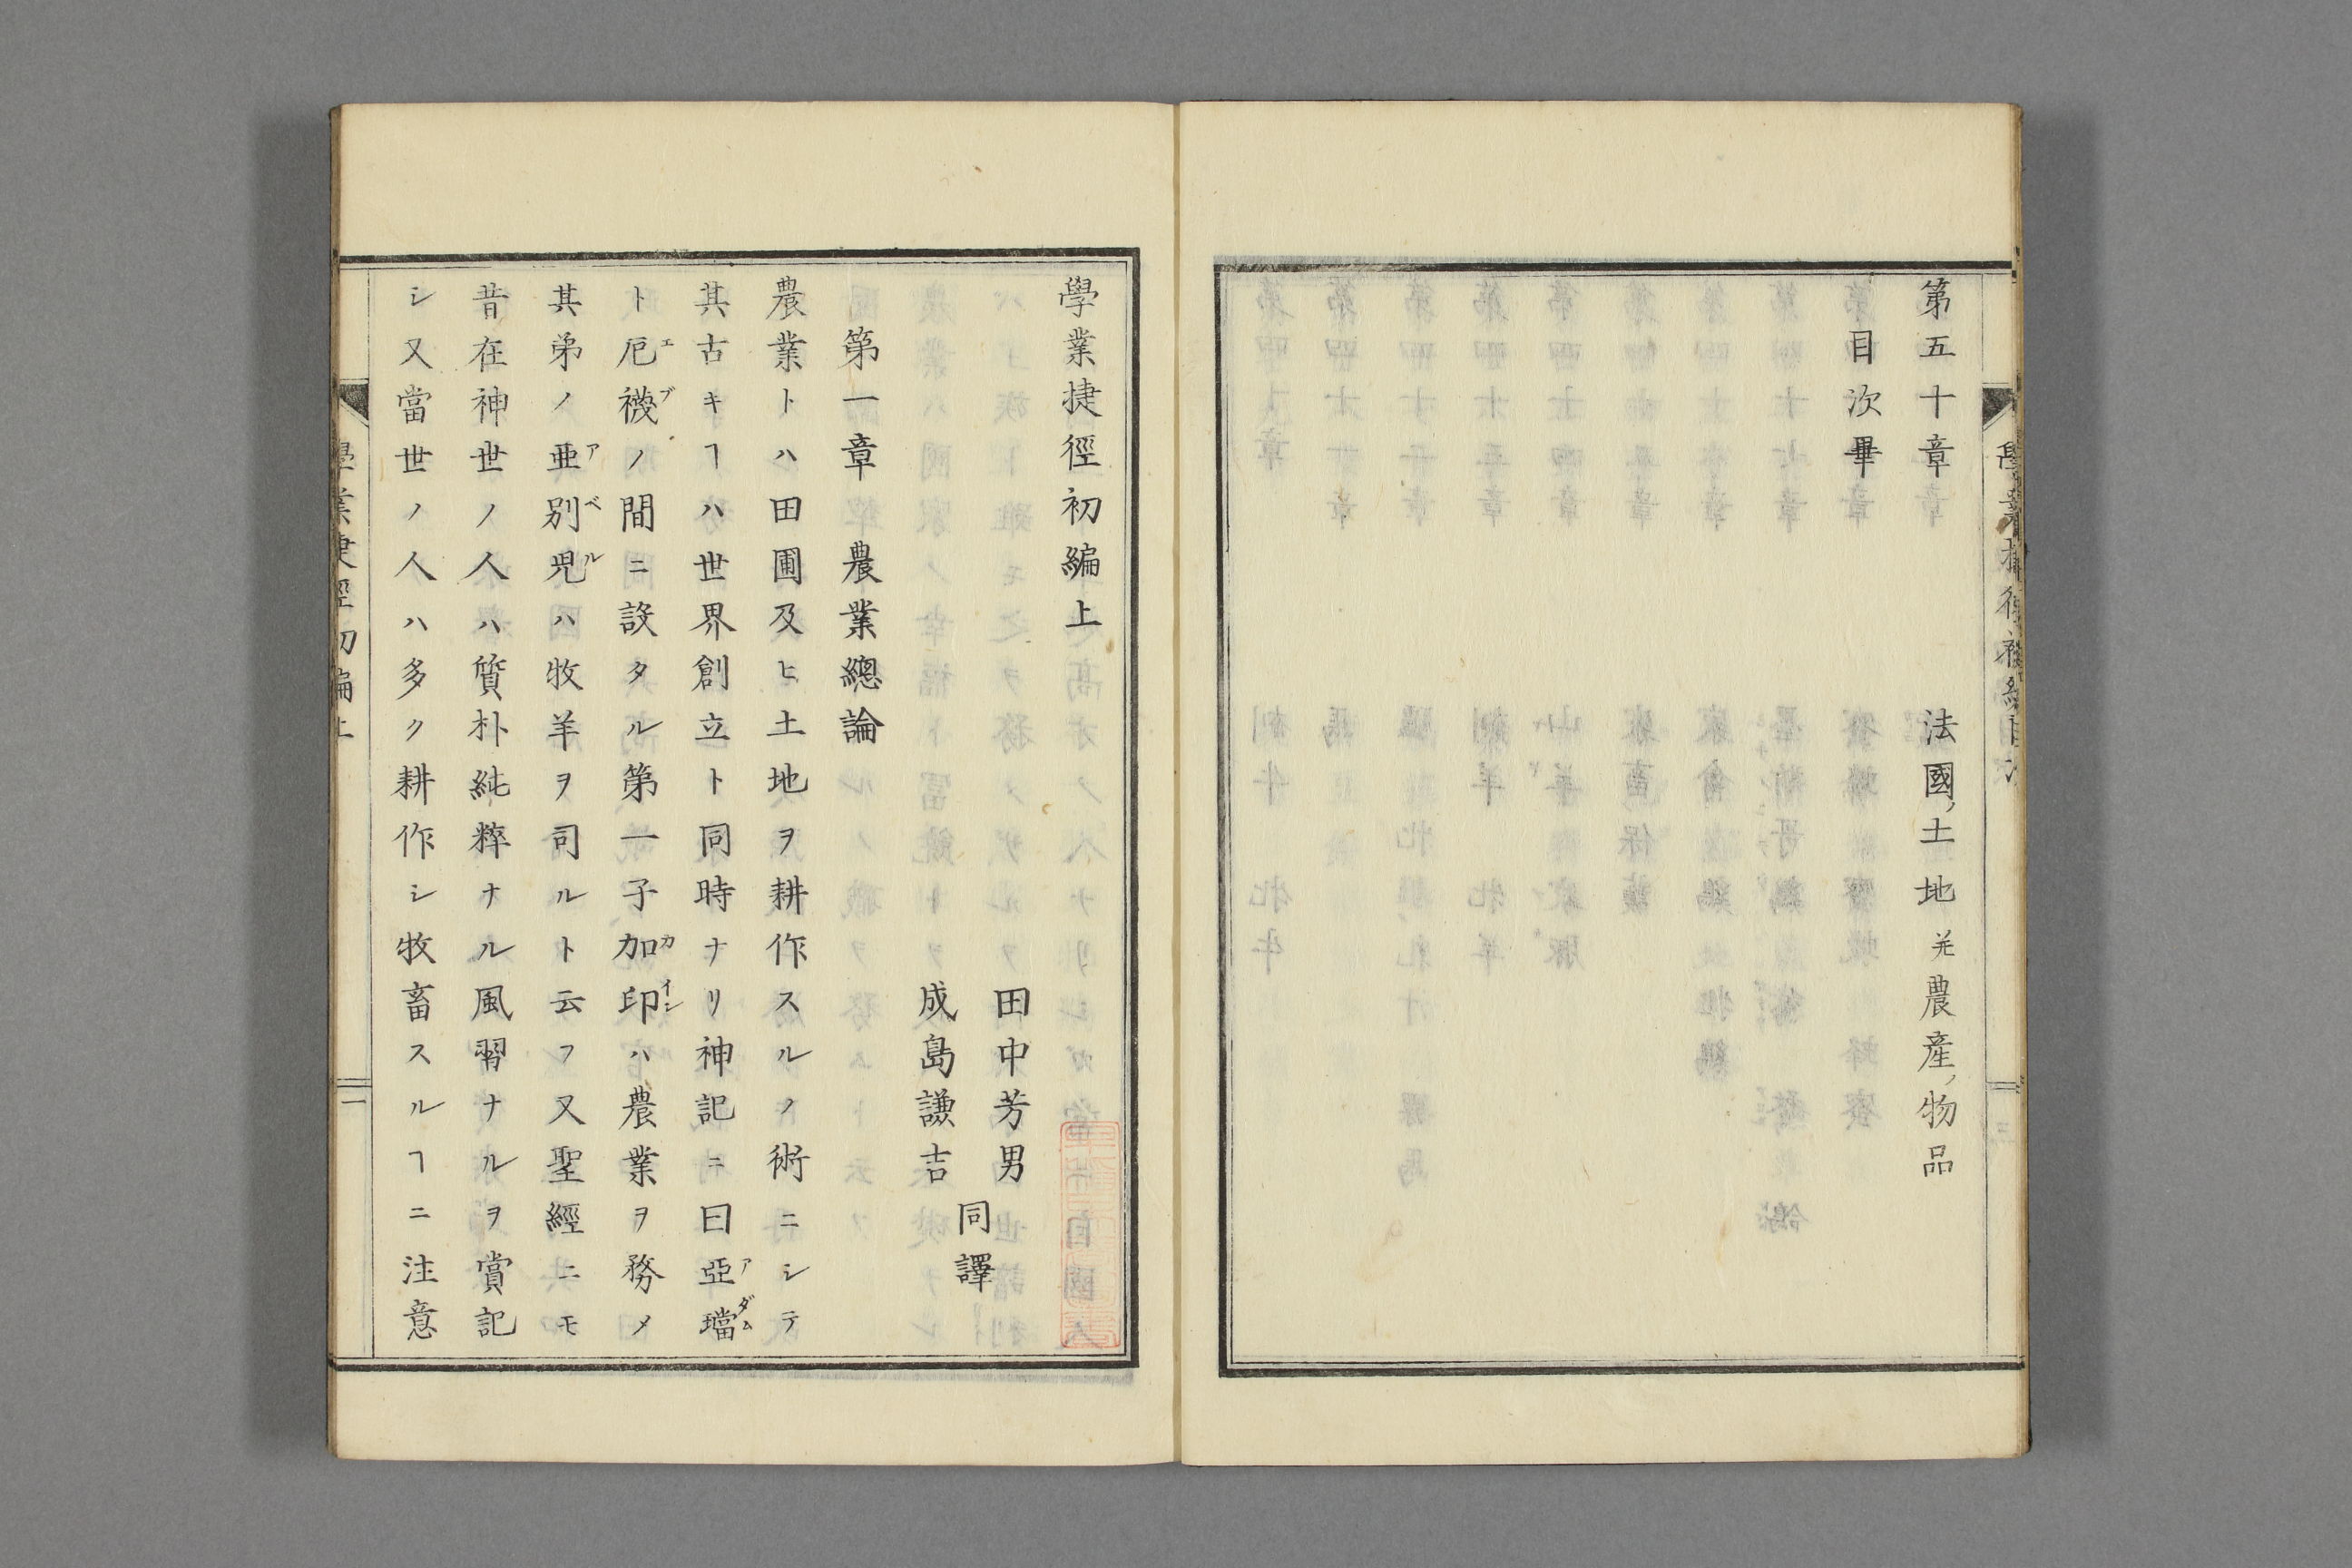 第五十章　法國ノ土地并農産ノ物品
目次畢
學業捷徑初編上
田中芳男
成島謙吉
同譯
第一章農業總論
農業トハ田圃及ヒ土地ヲ耕作スルノ術ニシテ
其古キヿハ世界創立ト同時ナリ神記ニ曰亞璫
アダム
ト厄襪ノ間ニ設タル第一子加印ハ農業ヲ務メ
エブ
カイン
其弟ノ亜別児ハ牧羊ヲ司ルト云フ又聖經ニモ
アベル
昔在神世ノ人ハ質朴純粹ナル風習ナルヲ賞記
シ又當世ノ人ハ多ク耕作シ牧畜スルヿニ注意
一